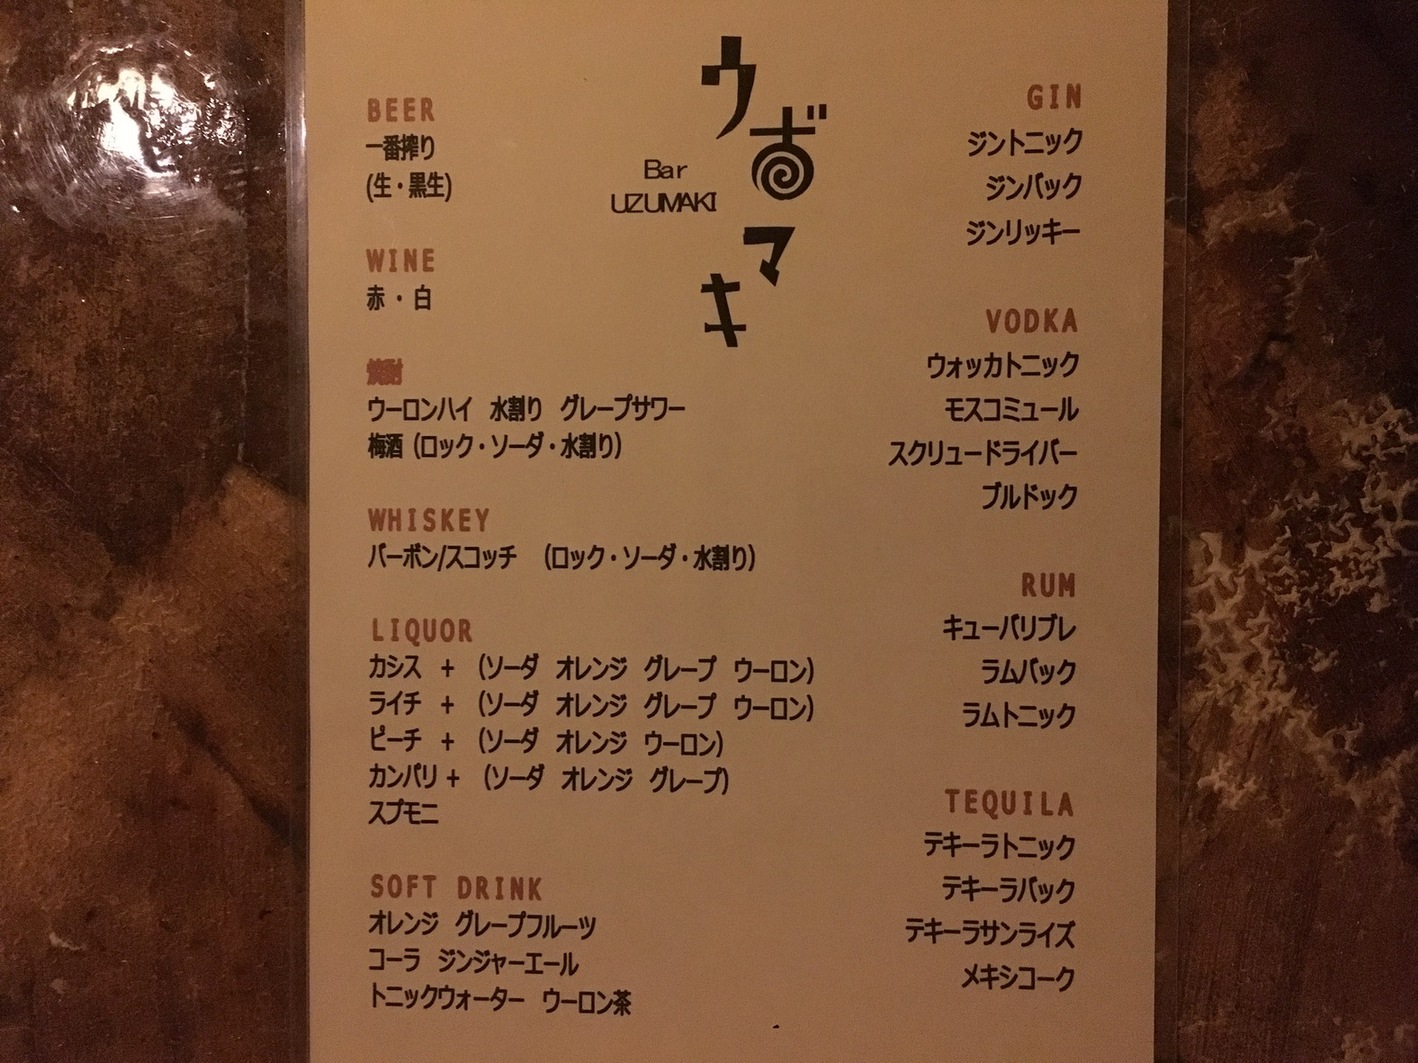 ウずマキ
Bar
UZUMAKI
BEER
一番搾り
(生・黒生)
WINE
赤・白
焼酎
ウーロンハイ 水割り グレープサワー
梅酒(ロック・ソーダ・水割り)
WHISKEY
バーボン/スコッチ (ロック・ソーダ・水割り)
LIQUOR
カシス + (ソーダ オレンジ グレープ ウーロン)
ライチ + (ソーダ オレンジ グレープ ウーロン)
ピーチ + (ソーダ オレンジ ウーロン)
カンパリ + (ソーダ オレンジ グレープ)
スプモニ
SOFT DRINK
オレンジ グレープフルーツ
コーラ ジンジャーエール
トニックウォーター ウーロン茶
GIN
ジントニック
ジンバック
ジンリッキー
VODKA
ウォッカトニック
モスコミュール
スクリュードライバー
ブルドック
RUM
キューバリブレ
ラムバック
ラムトニック
TEQUILA
テキーラトニック
テキーラバック
テキーラサンライズ
メキシコーク